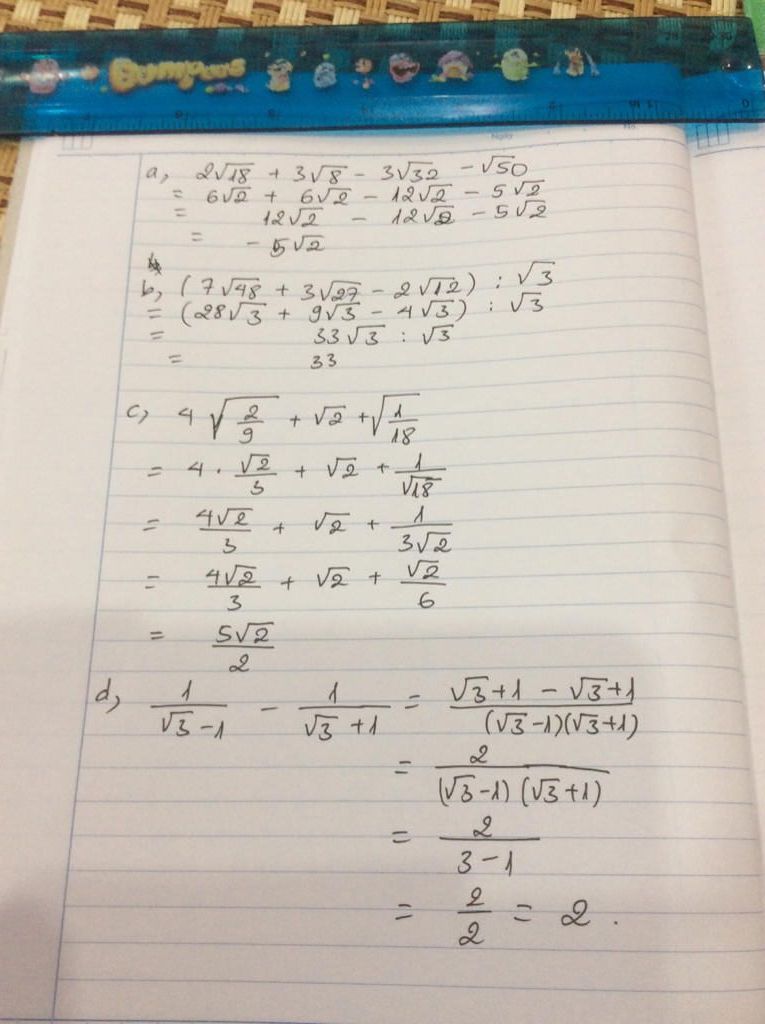 Bumpows
Ngày
No.
a, 2√18 + 3√8 - 3√32 - √50
= 6√2 + 6√2 - 12√2 - 5√2
= 12√2 - 12√2 - 5√2
= -5√2
b, (7√48 + 3√27 - 2√12) : √3
= (28√3 + 9√3 - 4√3) : √3
= 33√3 : √3
= 33
c, 4√(2/9) + √2 + √(1/18)
= 4 . √2/3 + √2 + 1/√18
= 4√2/3 + √2 + 1/3√2
= 4√2/3 + √2 + √2/6
= 5√2/2
d, 1/(√3-1) - 1/(√3+1) = (√3+1 - √3+1)/((√3-1)(√3+1))
= 2/((√3-1)(√3+1))
= 2/(3-1)
= 2/2 = 2 .